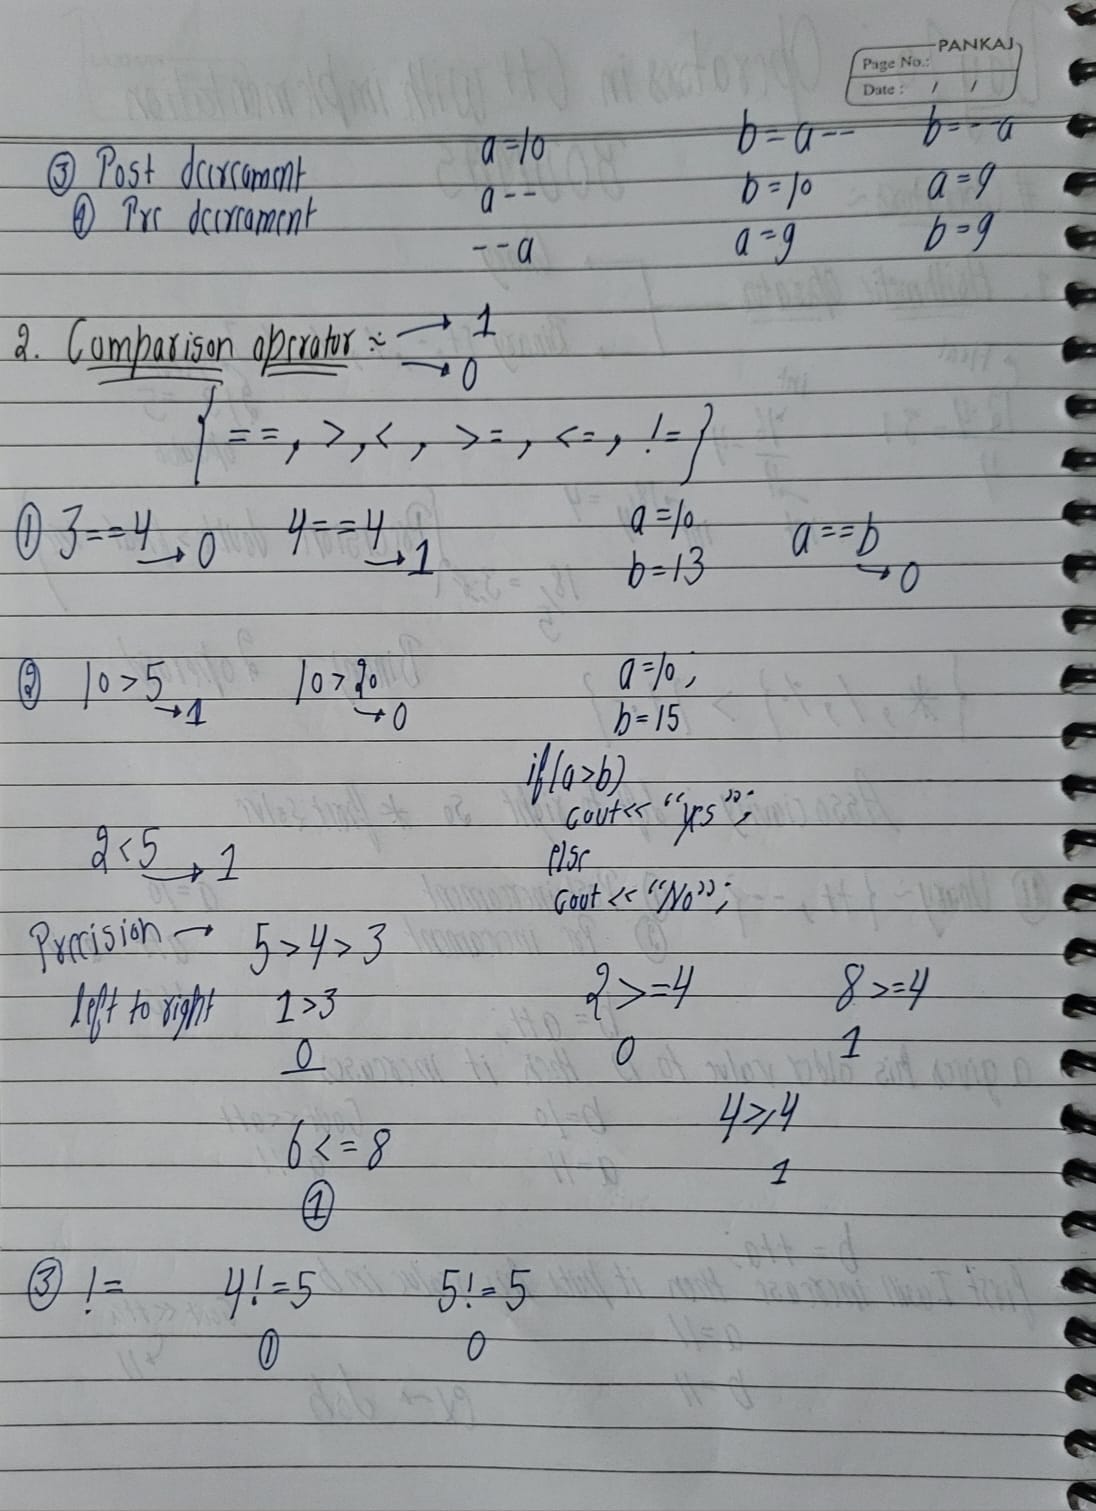 PANKAJ
Page No.:
Date : / /
③ Post decrament a=10 b=a-- b=--a
④ Pre decrament a-- b=10 a=9
--a a=9 b=9
2. Comparison operator :- → 1
→ 0
{ ==, >, <, >=, <=, != }
① 3==4 → 0 4==4 → 1 a=10 a==b
b=13 → 0
② 10>5 → 1 10>20 → 0 a=10;
b=15
if(a>b)
cout<< “yes”;
2<5 → 1 else
cout << “No”;
Precision → 5>4>3
left to right 1>3 2>=4 8>=4
0 0 1
6<=8 4≥4
① 1
③ != 4!=5 5!=5
① 0